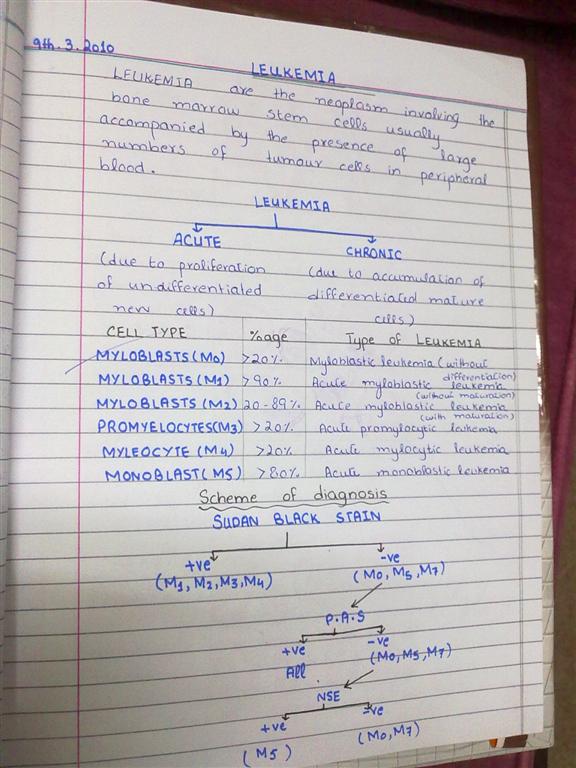 9th.3.2010
LEUKEMIA
LEUKEMIA are the neoplasm involving the
bone marrow stem cells usually
accompanied by the presence of large
numbers of tumour cells in peripheral
blood.
LEUKEMIA
ACUTE CHRONIC
(due to proliferation (due to accumulation of
of undifferentiated differentiated mature
new cells) cells)
CELL TYPE %age Type of LEUKEMIA
MYLOBLASTS (M0) >20% Myloblastic leukemia (without
differentiation)
MYLOBLASTS (M1) >90% Acute myloblastic leukemia
(without maturation)
MYLOBLASTS (M2) 20-89% Acute myloblastic leukemia
(with maturation)
PROMYELOCYTES(M3) >20% Acute promylocytic leukemia
MYLEOCYTE (M4) >20% Acute mylocytic leukemia
MONOBLAST( M5) >80% Acute monoblastic leukemia
Scheme of diagnosis
SUDAN BLACK STAIN
+ve -ve
(M1, M2, M3, M4) (M0, M5, M7)
P.A.S
+ve -ve
All (M0, M5, M7)
NSE
+ve -ve
(M5) (M0, M7)